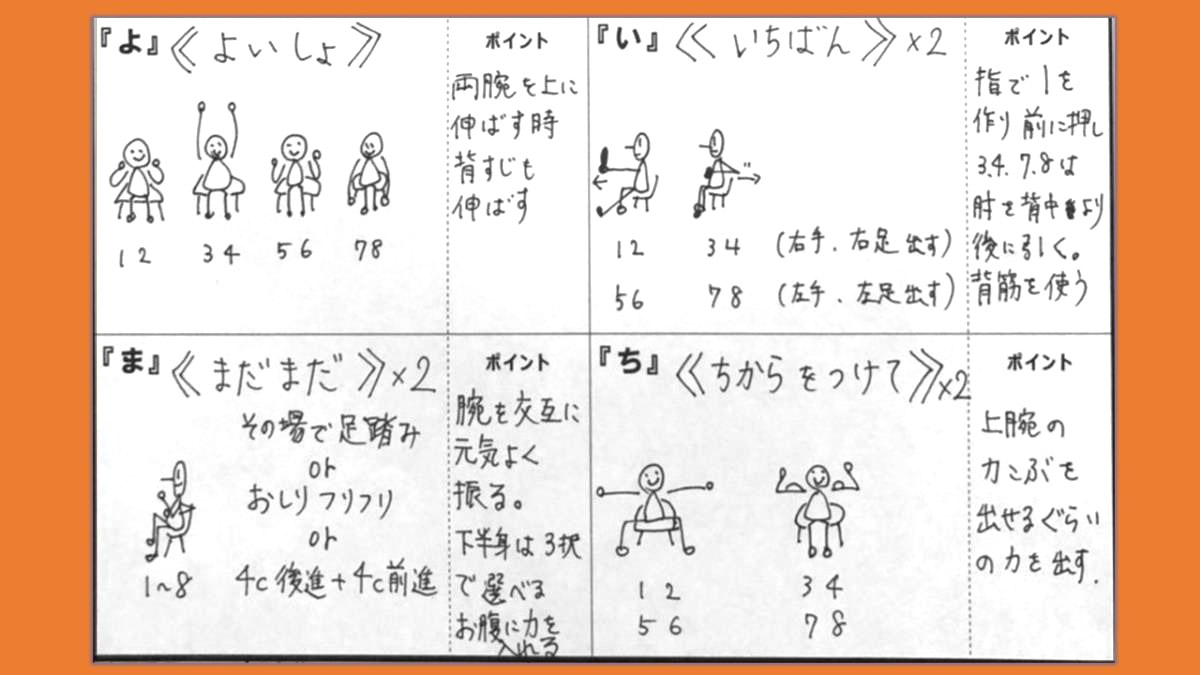 『よ』《よいしょ》
1 2
3 4
5 6
7 8
ポイント
両腕を上に
伸ばす時
背すじも
伸ばす
『い』《いちばん》×2
1 2
3 4
(右手、右足出す)
5 6
7 8
(左手、左足出す)
ポイント
指で1を
作り前に押し
3.4.7.8は
肘を背中より
後に引く。
背筋を使う
『ま』《まだまだ》×2
その場で足踏み
or
おしりフリフリ
or
4c後進+4c前進
1~8
ポイント
腕を交互に
元気よく
振る。
下半身は3択
で選べる
お腹に力を
入れる
『ち』《ちからをつけて》×2
1 2
3 4
5 6
7 8
ポイント
上腕の
力こぶを
出せるぐらい
の力を出す.